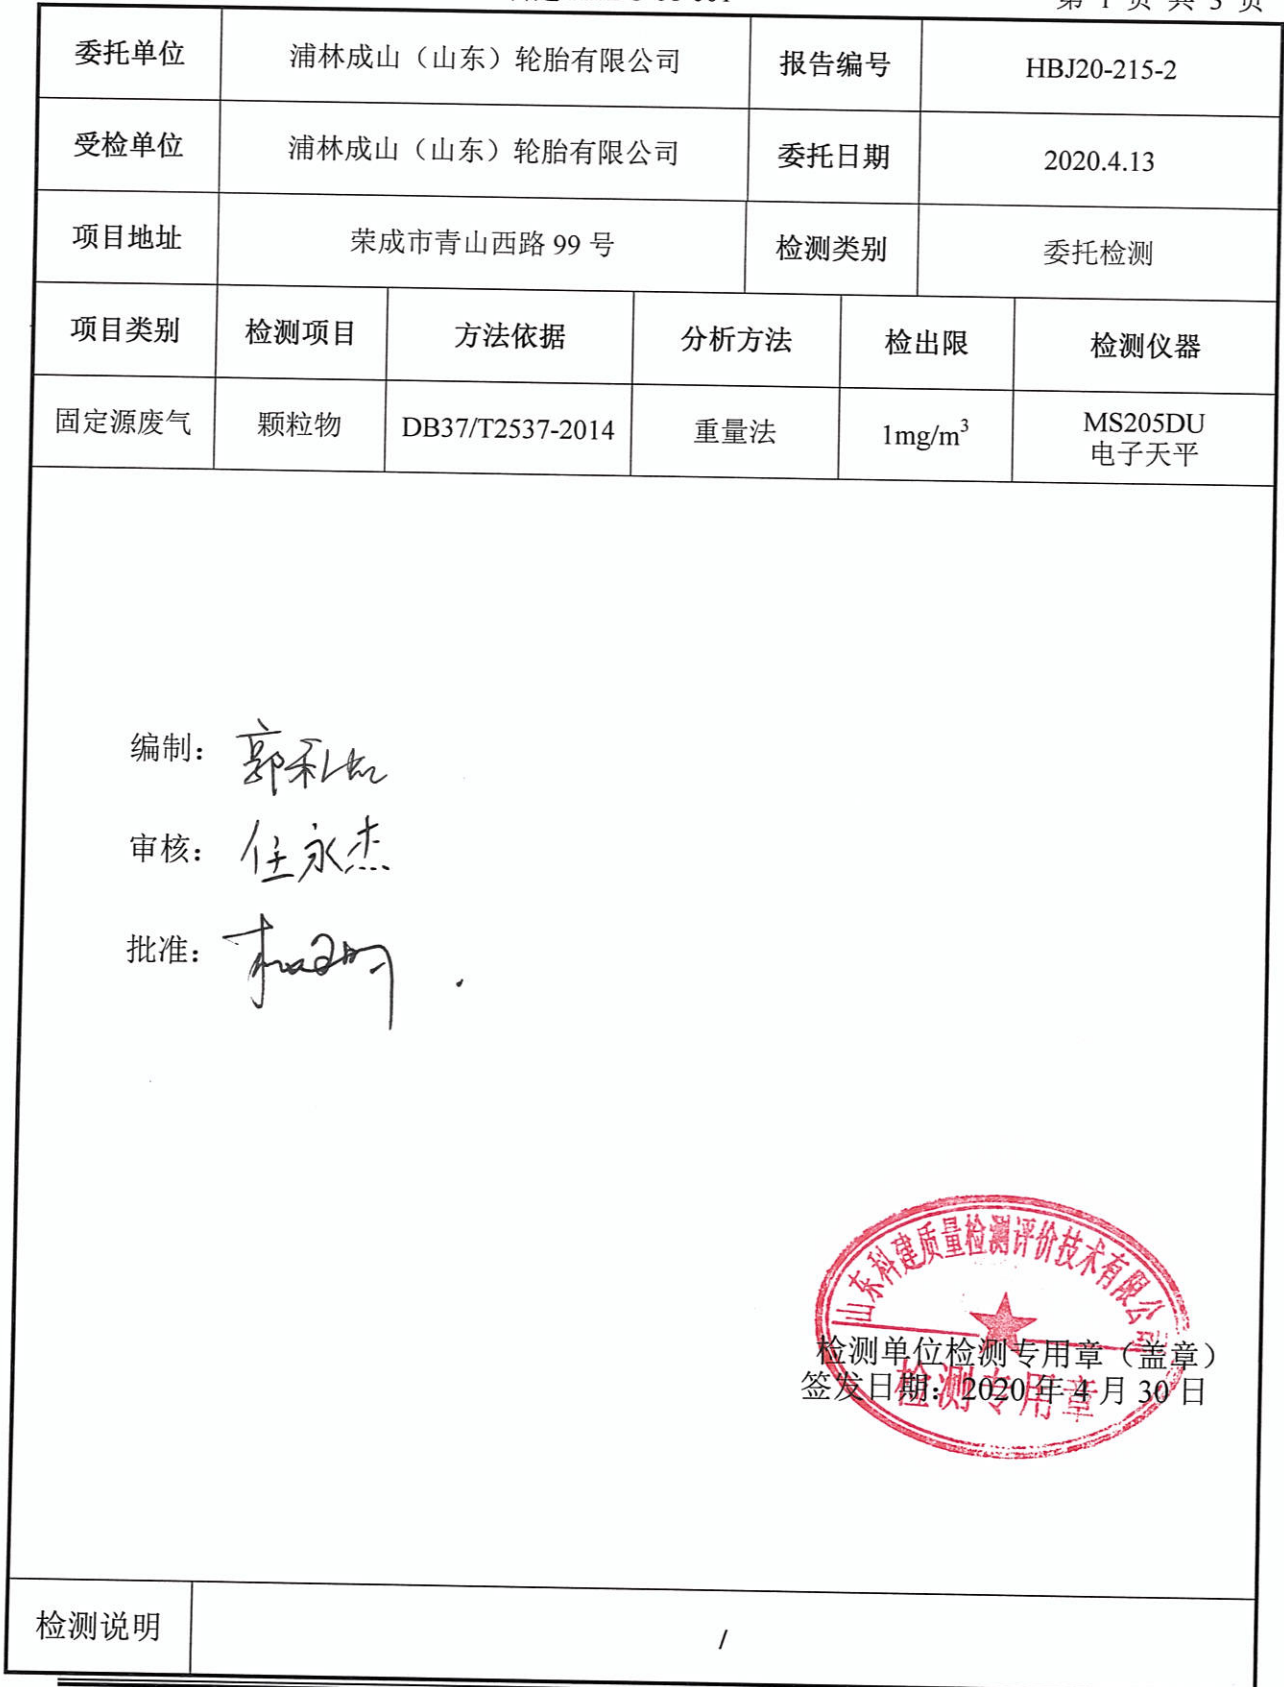 第 1 页 共 3 页
委托单位 浦林成山（山东）轮胎有限公司 报告编号 HBJ20-215-2
受检单位 浦林成山（山东）轮胎有限公司 委托日期 2020.4.13
项目地址 荣成市青山西路 99 号 检测类别 委托检测
项目类别 检测项目 方法依据 分析方法 检出限 检测仪器
固定源废气 颗粒物 DB37/T2537-2014 重量法 1mg/m³ MS205DU
电子天平
编制：
审核：任永杰
批准：
山东科建质量检测评价技术有限公司
检测单位检测专用章（盖章）
签发日期：2020 年 4 月 30 日
检测专用章
检测说明 /